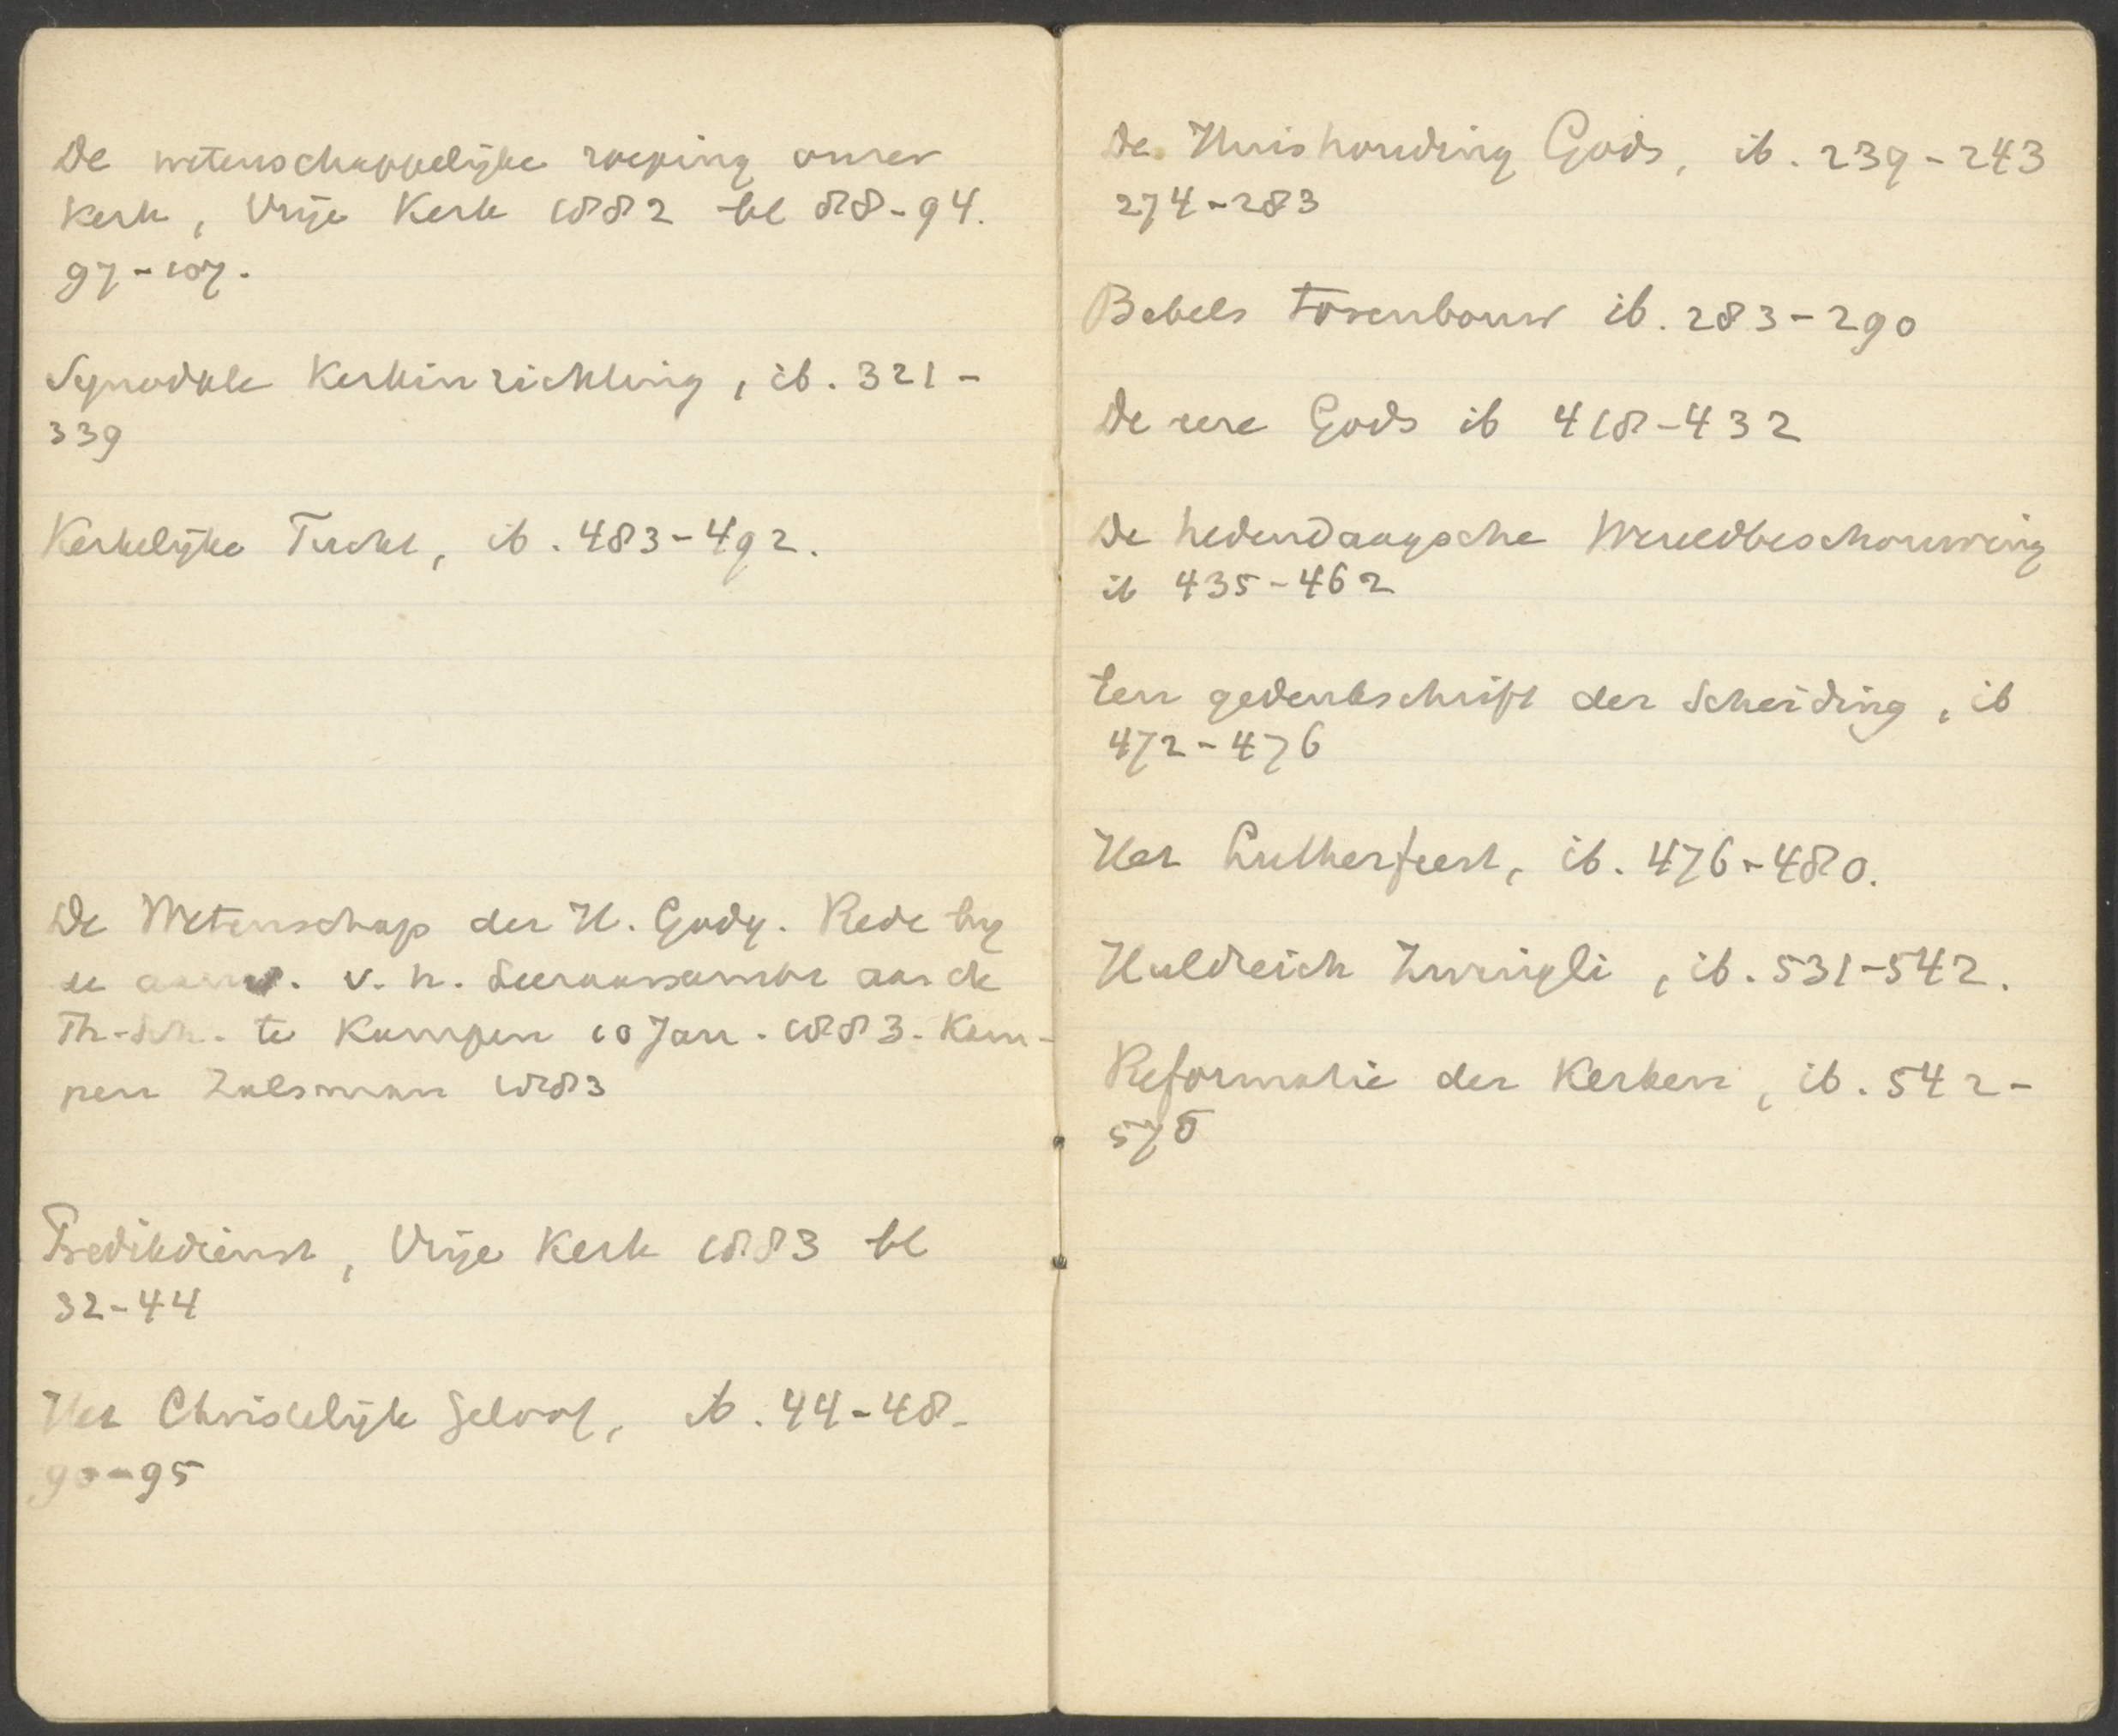 De wetenschappelijke roeping onzer
Kerk, Vrije Kerk 1882 bl 88-94.
97-107.
Synodale Kerkinrichting, ib. 321-
339
Kerkelijke Tucht, ib. 483-492.
De Wetenschap der H. Godg. Rede by
de aanv. v. h. Leeraarsambt aan de
Th. Sch. te Kampen 10 Jan. 1883. Kam-
pen Zalsman 1883
Predikdienst, Vrije Kerk 1883 bl
32-44
Het Christelijk Geloof, ib. 44-48.
90-95
De Huishouding Gods, ib. 239-243
274-283
Babels torenbouw ib. 283-290
De eere Gods ib 418-432
De hedendaagsche Wereldbeschouwing
ib 435-462
Een gedenkschrift der Scheiding, ib
472-476
Het Lutherfeest, ib. 476-480.
Huldreich Zwingli, ib. 531-542.
Reformatie der Kerken, ib. 542-